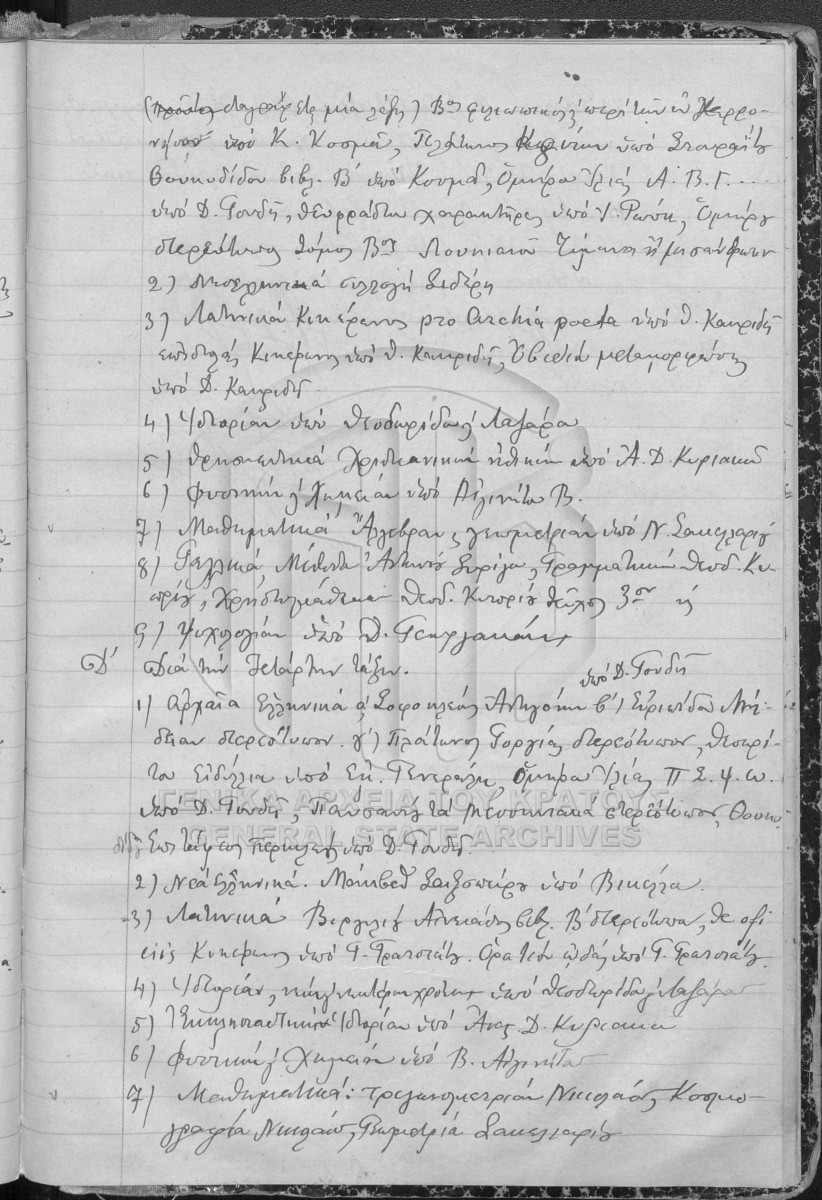 διαγράφεται μία λέξις) Βον φιλιππικόν, περὶ τῶν ἐν Χερρο-
νήσῳ ὑπὸ Κ. Κοσμᾶ, Πλάτωνος Κρίτων ὑπὸ
Θουκυδίδου βιβλ. Β΄ ὑπὸ Κοσμᾶ, Ὁμήρου Ἰλιάς Α. Β. Γ. ...
ὑπὸ Δ. Γουδῆ, Θεοφράστου χαρακτῆρες ὑπὸ Ι. Ρώση, Ὁμήρου
στερεότυπος τόμος Βος Λουκιανοῦ Τίμων ἢ μισάνθρωπον
2) Νεοελληνικά συλλογή Σιδέρη
3) Λατινικά Κικέρωνος pro Archia poeta ὑπὸ Θ. Κακριδῆ
ἐπιστολάς Κικέρωνος ὑπὸ Θ. Κακριδῆ, Ὀβιδίου μεταμορφώσεις
ὑπὸ Θ. Κακριδῆ
4) Ἱστορίαν ὑπὸ Θεοδωρίδου, Λαζάρου
5) Θρησκευτικά Χριστιανικὴν ἠθικὴν ὑπὸ Ἀ. Δ. Κυριακοῦ
6) Φυσικὴν, Χημείαν ὑπὸ Αἰγινήτου Β.
7) Μαθηματικά Ἄλγεβραν, γεωμετρίαν ὑπὸ Ν. Σακελλαρίου
8) Γαλλικά, Μέθοδος Ἀντωνίου Σπυρίδου, Γραμματικὴν Θεοδ. Κυ-
πρίου, Χρηστομάθεια Θεοδ. Κυπρίου τεῦχος 3ον
9) Ψυχολογίαν ὑπὸ Θ. Γεωργακάκη
Δ΄ Διὰ τὴν Τετάρτην τάξιν.
ὑπὸ Δ. Γουδῆ
1) Ἀρχαῖα Ἑλληνικά α΄ Σοφοκλέους Ἀντιγόνην β΄) Εὐριπίδου Μή-
δειαν στερεότυπον. γ΄) Πλάτωνος Γοργίας στερεότυπον, Θεοκρί-
του Εἰδύλλια ὑπὸ Ἐμ. Γενεράλη, Ὁμήρου Ἰλιάς Π Σ. Ψ. Ω.
ὑπὸ Δ. Γουδῆ, Παυσανίου τὰ Μεσσηνιακά στερεότυπον, Θουκυ-
δίδου Ἐπιτάφιος Περικλέους ὑπὸ Δ. Γουδῆ.
2) Νέα Ἑλληνικά. Μάκβεθ Σαιξσπήρου ὑπὸ Βικέλα.
3) Λατινικά Βιργιλίου Αἰνειάδος βιβλ. Β΄ στερεότυπα, de ofi
ciis Κικέρωνος ὑπὸ Γ. Γρατσιάτου. Ὁρατίου ᾠδάς ὑπὸ Γ. Γρατσιάτου.
4) Ἱστορίαν, νέων, νεωτέρων χρόνων ὑπὸ Θεοδωρίδου, Λαζάρου
5) Ἐκκλησιαστικὴν Ἱστορίαν ὑπὸ Ἀνας. Δ. Κυριακοῦ
6) Φυσικὴν, Χημείαν ὑπὸ Β. Αἰγινήτου
7) Μαθηματικά: τριγωνομετρίαν Νικολάου, Κοσμο-
γραφία Νικολάου, Γεωμετρία Σακελλαρίου
ΓΕΝΙΚΑ ΑΡΧΕΙΑ ΤΟΥ ΚΡΑΤΟΥΣ
GENERAL STATE ARCHIVES